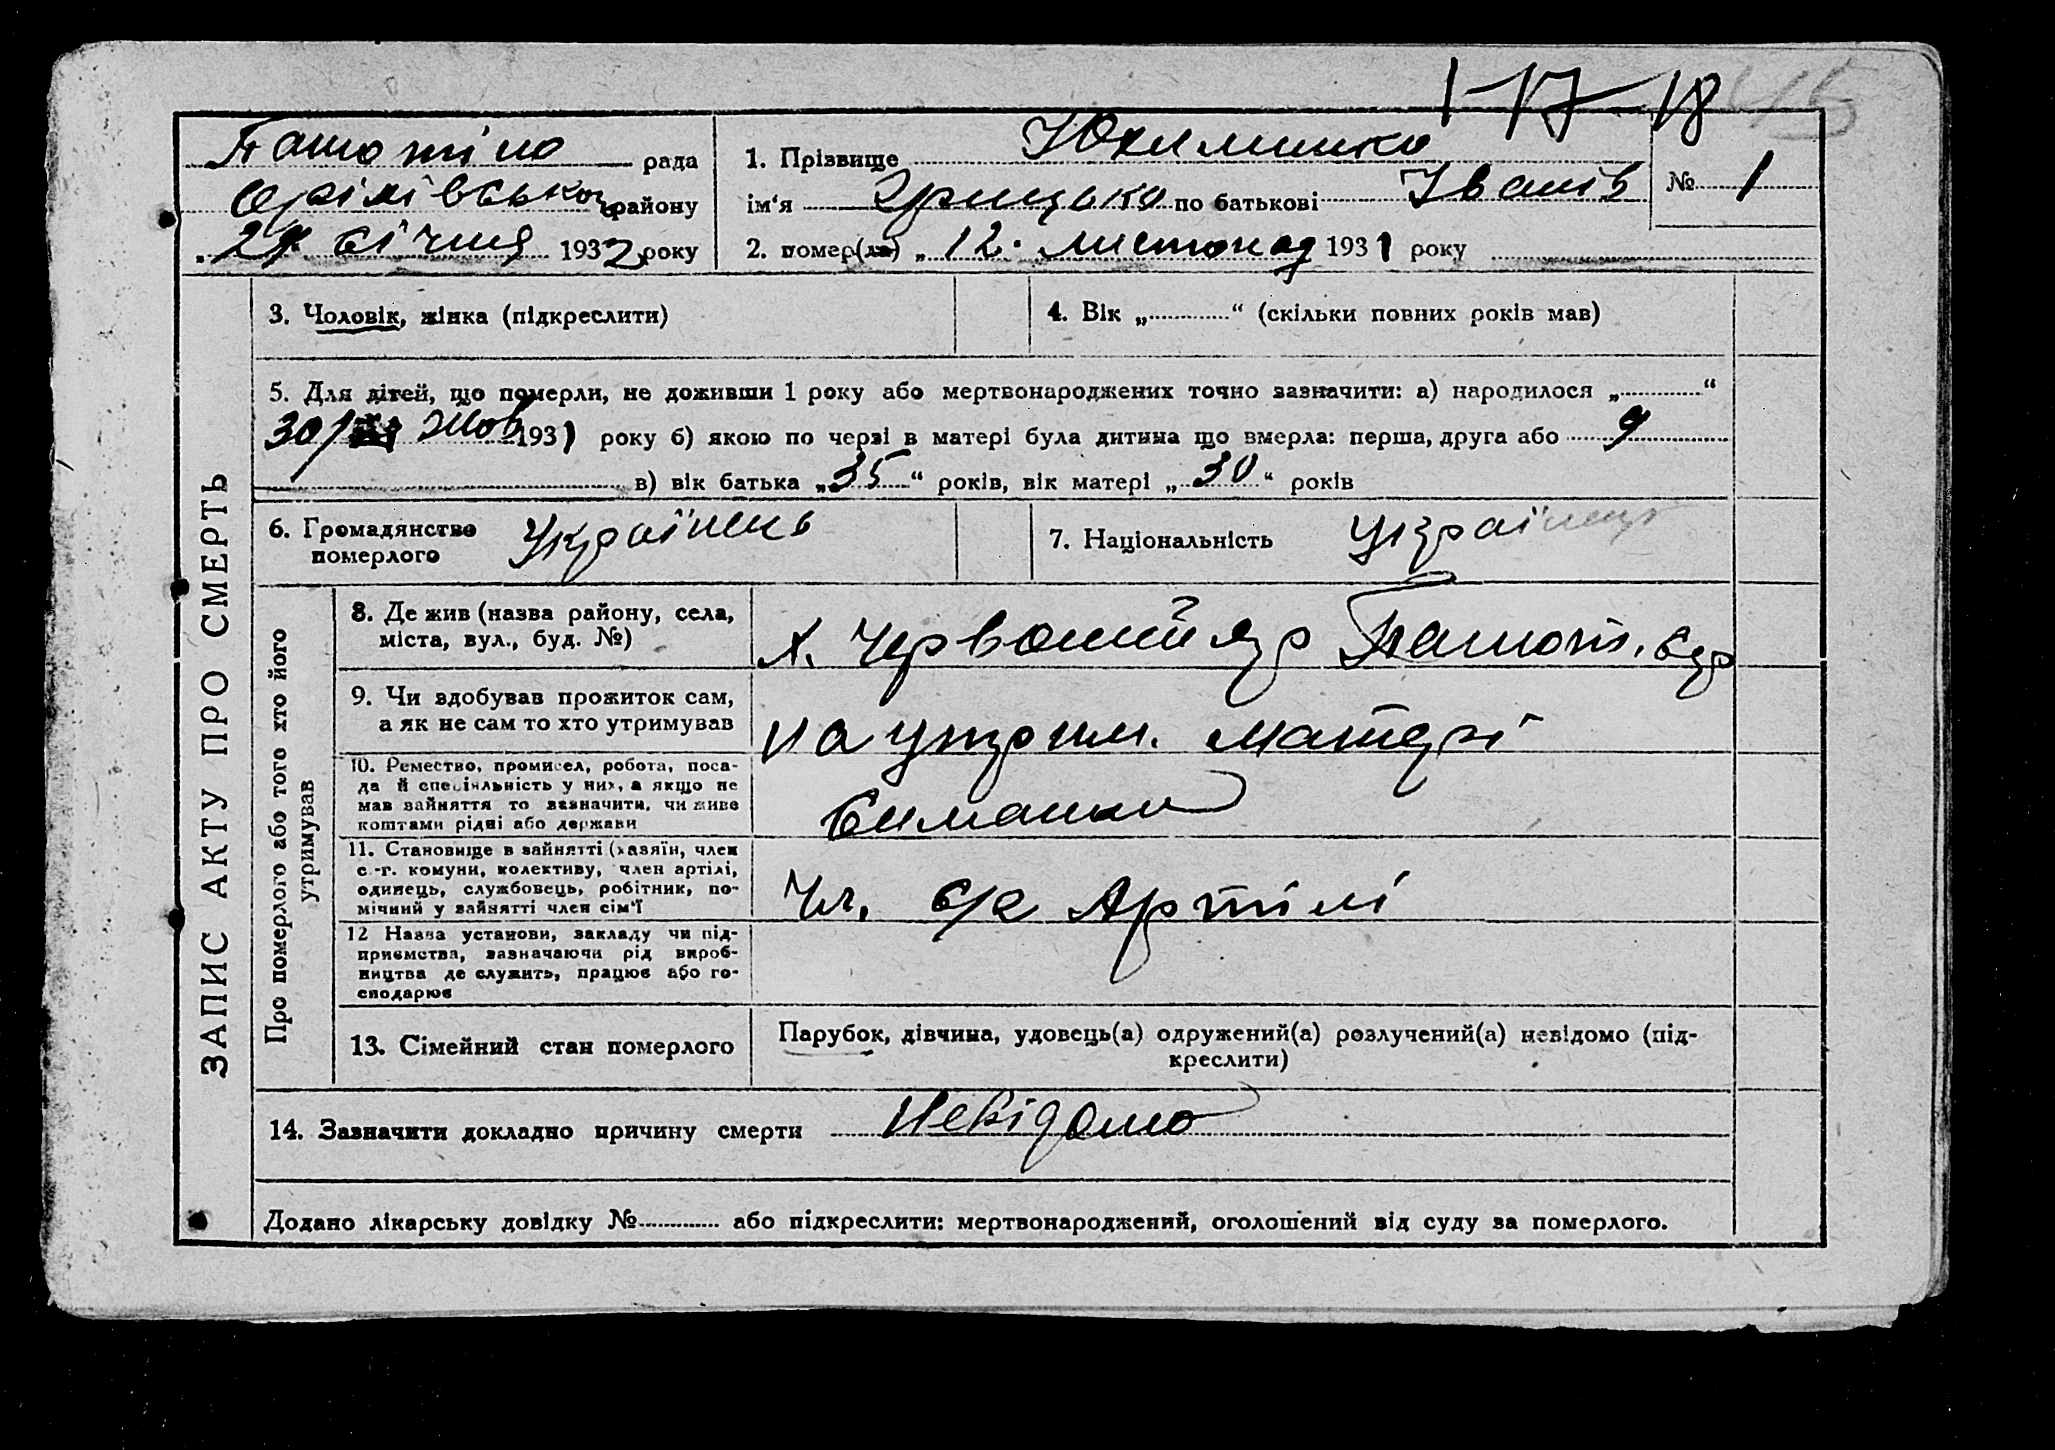 1-17-18 45
рада
району
2 січня 1932 року
1. Прізвище Юхименко
№ 1
ім'я Грицько по батькові Іванів
2. помер(ла) „12. листопад 1931 року
ЗАПИС АКТУ ПРО СМЕРТЬ
3. Чоловік, жінка (підкреслити)
4. Вік „ “ (скільки повних років мав)
5. Для дітей, що померли, не доживши 1 року або мертвонароджених точно зазначити: а) народилося „ “
30/ Жов 1931 року б) якою по черзі в матері була дитина що вмерла: перша, друга або 9
в) вік батька „35“ років, вік матері „30“ років
6. Громадянство Українець
померлого
7. Національність Українець
Про померлого або того хто його
утримував
8. Де жив (назва району, села,
міста, вул., буд. №)
х. Червоний Яр
9. Чи здобував прожиток сам,
а як не сам то хто утримував
на утрим. матері
10. Ремество, промисел, робота, поса-
да й спеціяльність у них, а якщо не
мав зайняття то зазначити, чи живе
коштами рідні або держави
11. Становище в зайнятті (хазяїн, член
с.-г. комуни, колективу, член артілі,
одинець, службовець, робітник, по-
мічний у зайнятті член сім'ї
Чл. с/г Артілі
12 Назва установи, закладу чи під-
приємства, зазначаючи рід вироб-
ництва де служить, працює або го-
сподарює
13. Сімейний стан померлого
Парубок, дівчина, удовець(а) одружений(а) розлучений(а) невідомо (під-
креслити)
14. Зазначити докладно причину смерти Невідомо
Додано лікарську довідку № або підкреслити: мертвонароджений, оголошений від суду за померлого.